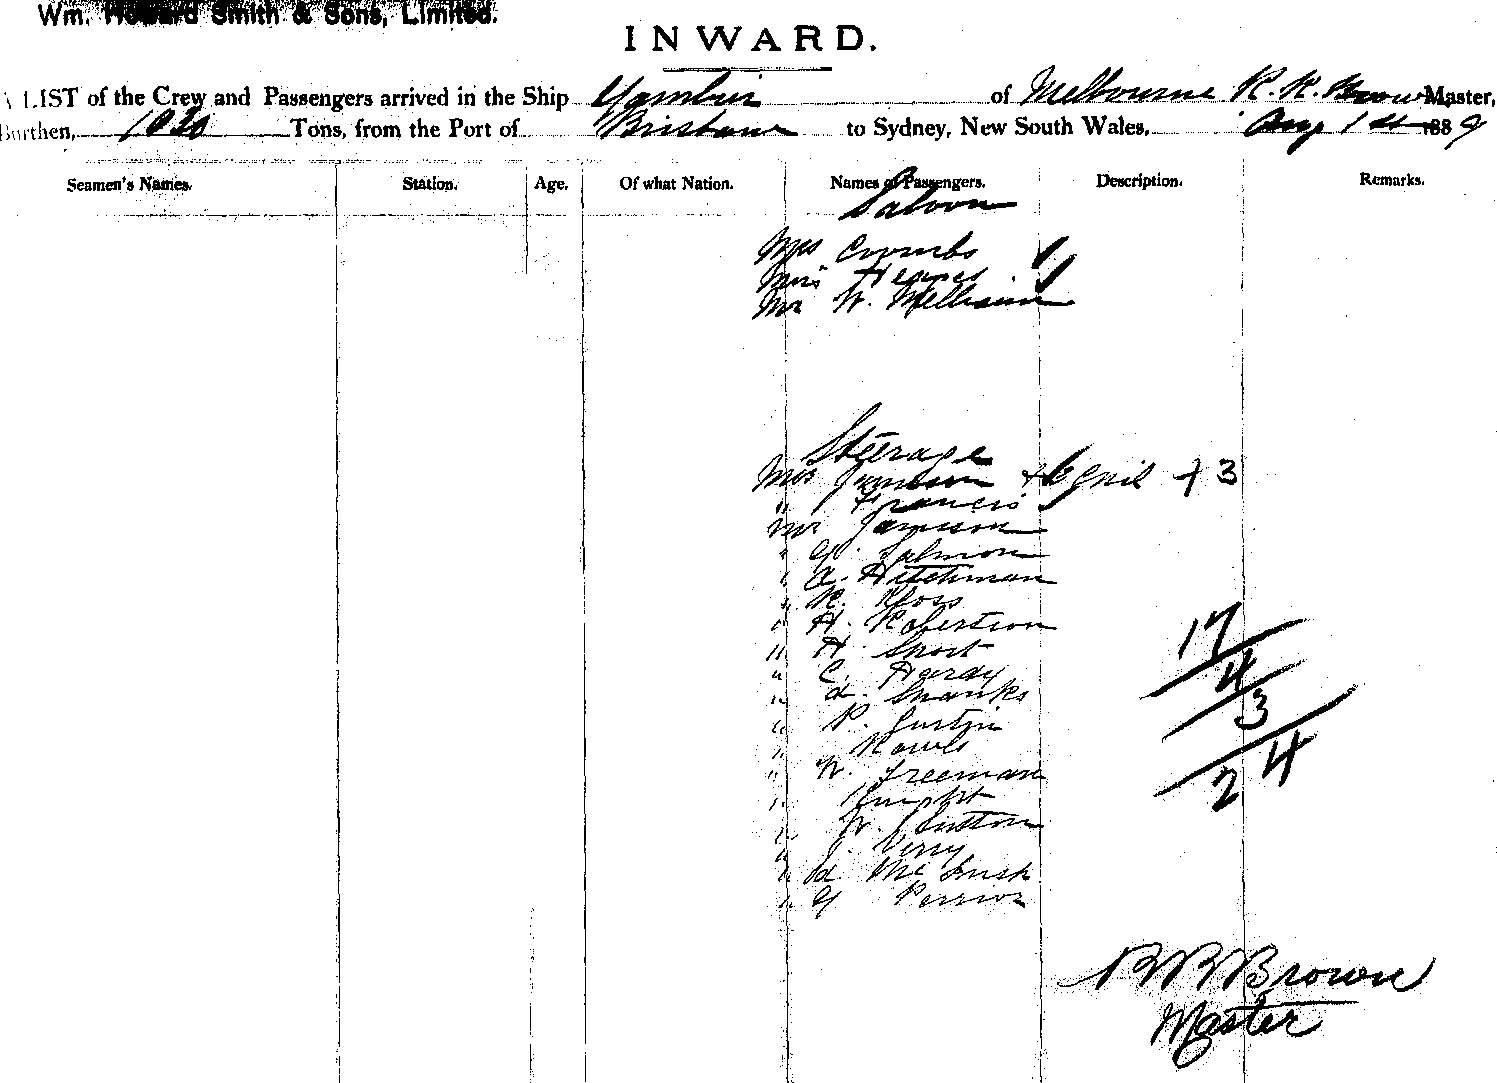 Wm. Howard Smith & Sons, Limited.
INWARD.
A LIST of the Crew and Passengers arrived in the Ship Gambier of Melbourne R. R. Brown Master,
Burthen, 1030 Tons, from the Port of Brisbane to Sydney, New South Wales, Aug 1st 1889
Seamen's Names. Station. Age. Of what Nation. Names of Passengers. Description. Remarks.
Saloon
Mrs Coombs
Miss
Mr W.
Steerage
Mrs + 3
" Francis
Mr Jamieson
" G. Salmon
" A. Hitchman
" R. Kloss
" H. Robertson
" H. Short
" C. Hardy
" d. Shanks
" P. Justin
" Rowls
" W. Freeman
" Knight
" W.
" J. Verry
" d Mc Lusk
" G Perrior
17
4
3
24
R R Brown
Master